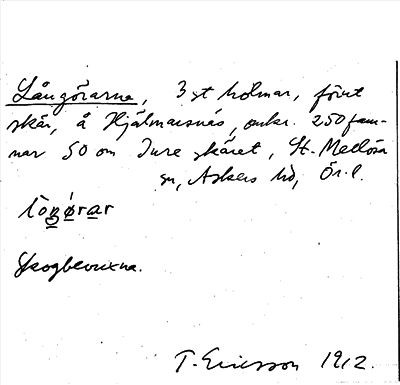 Långörarna, 3 st holmar, förut
skär, å Hjälmarsnäs, omkr. 250 fam-
nar SO om Jure skäret, St. Mellösa
sn, Askers hd, Ör. l.
lòŋǿrar
Skogbevuxna.
T. Ericsson 1912.